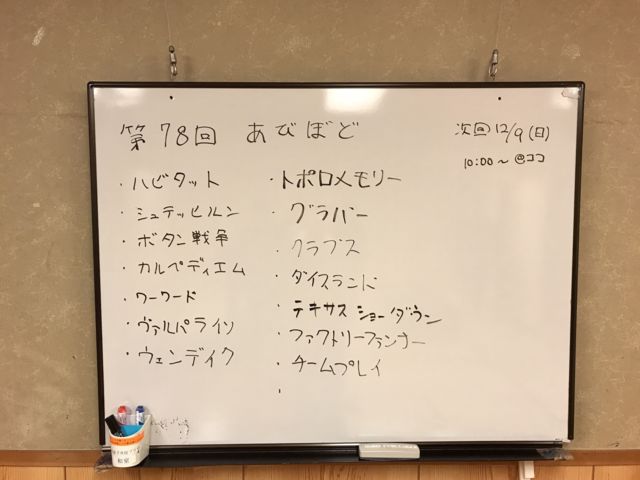 第78回 あびぼど
次回 12/9(日)
10:00〜 @ココ
・ハビタット
・シュテッヒルン
・ボタン戦争
・カルペディエム
・ワーワード
・ヴァルパライソ
・ウェンディク
・トポロメモリー
・グラバー
・クラブス
・ダイスランド
・テキサス ショーダウン
・ファクトリーファンナー
・チームプレイ
・
和室